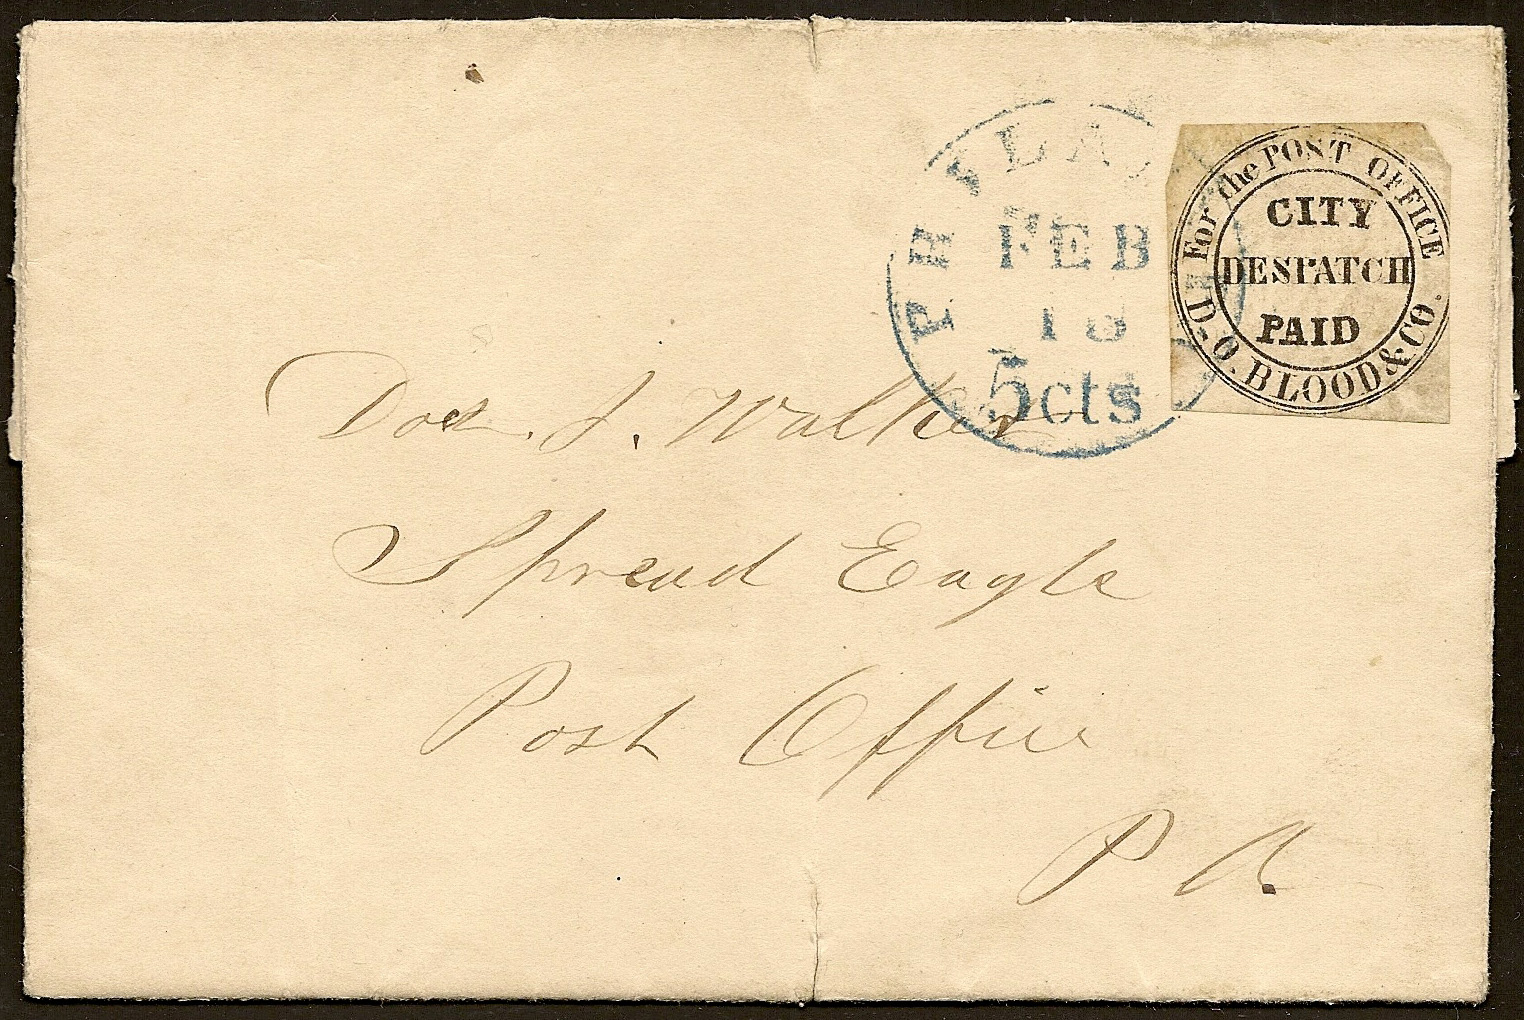 PHILADA
FEB
18
5cts
For the POST OFFICE
CITY
DESPATCH
PAID
D. O. BLOOD & CO.
J. Walker
Spread Eagle
Post Office
P A.